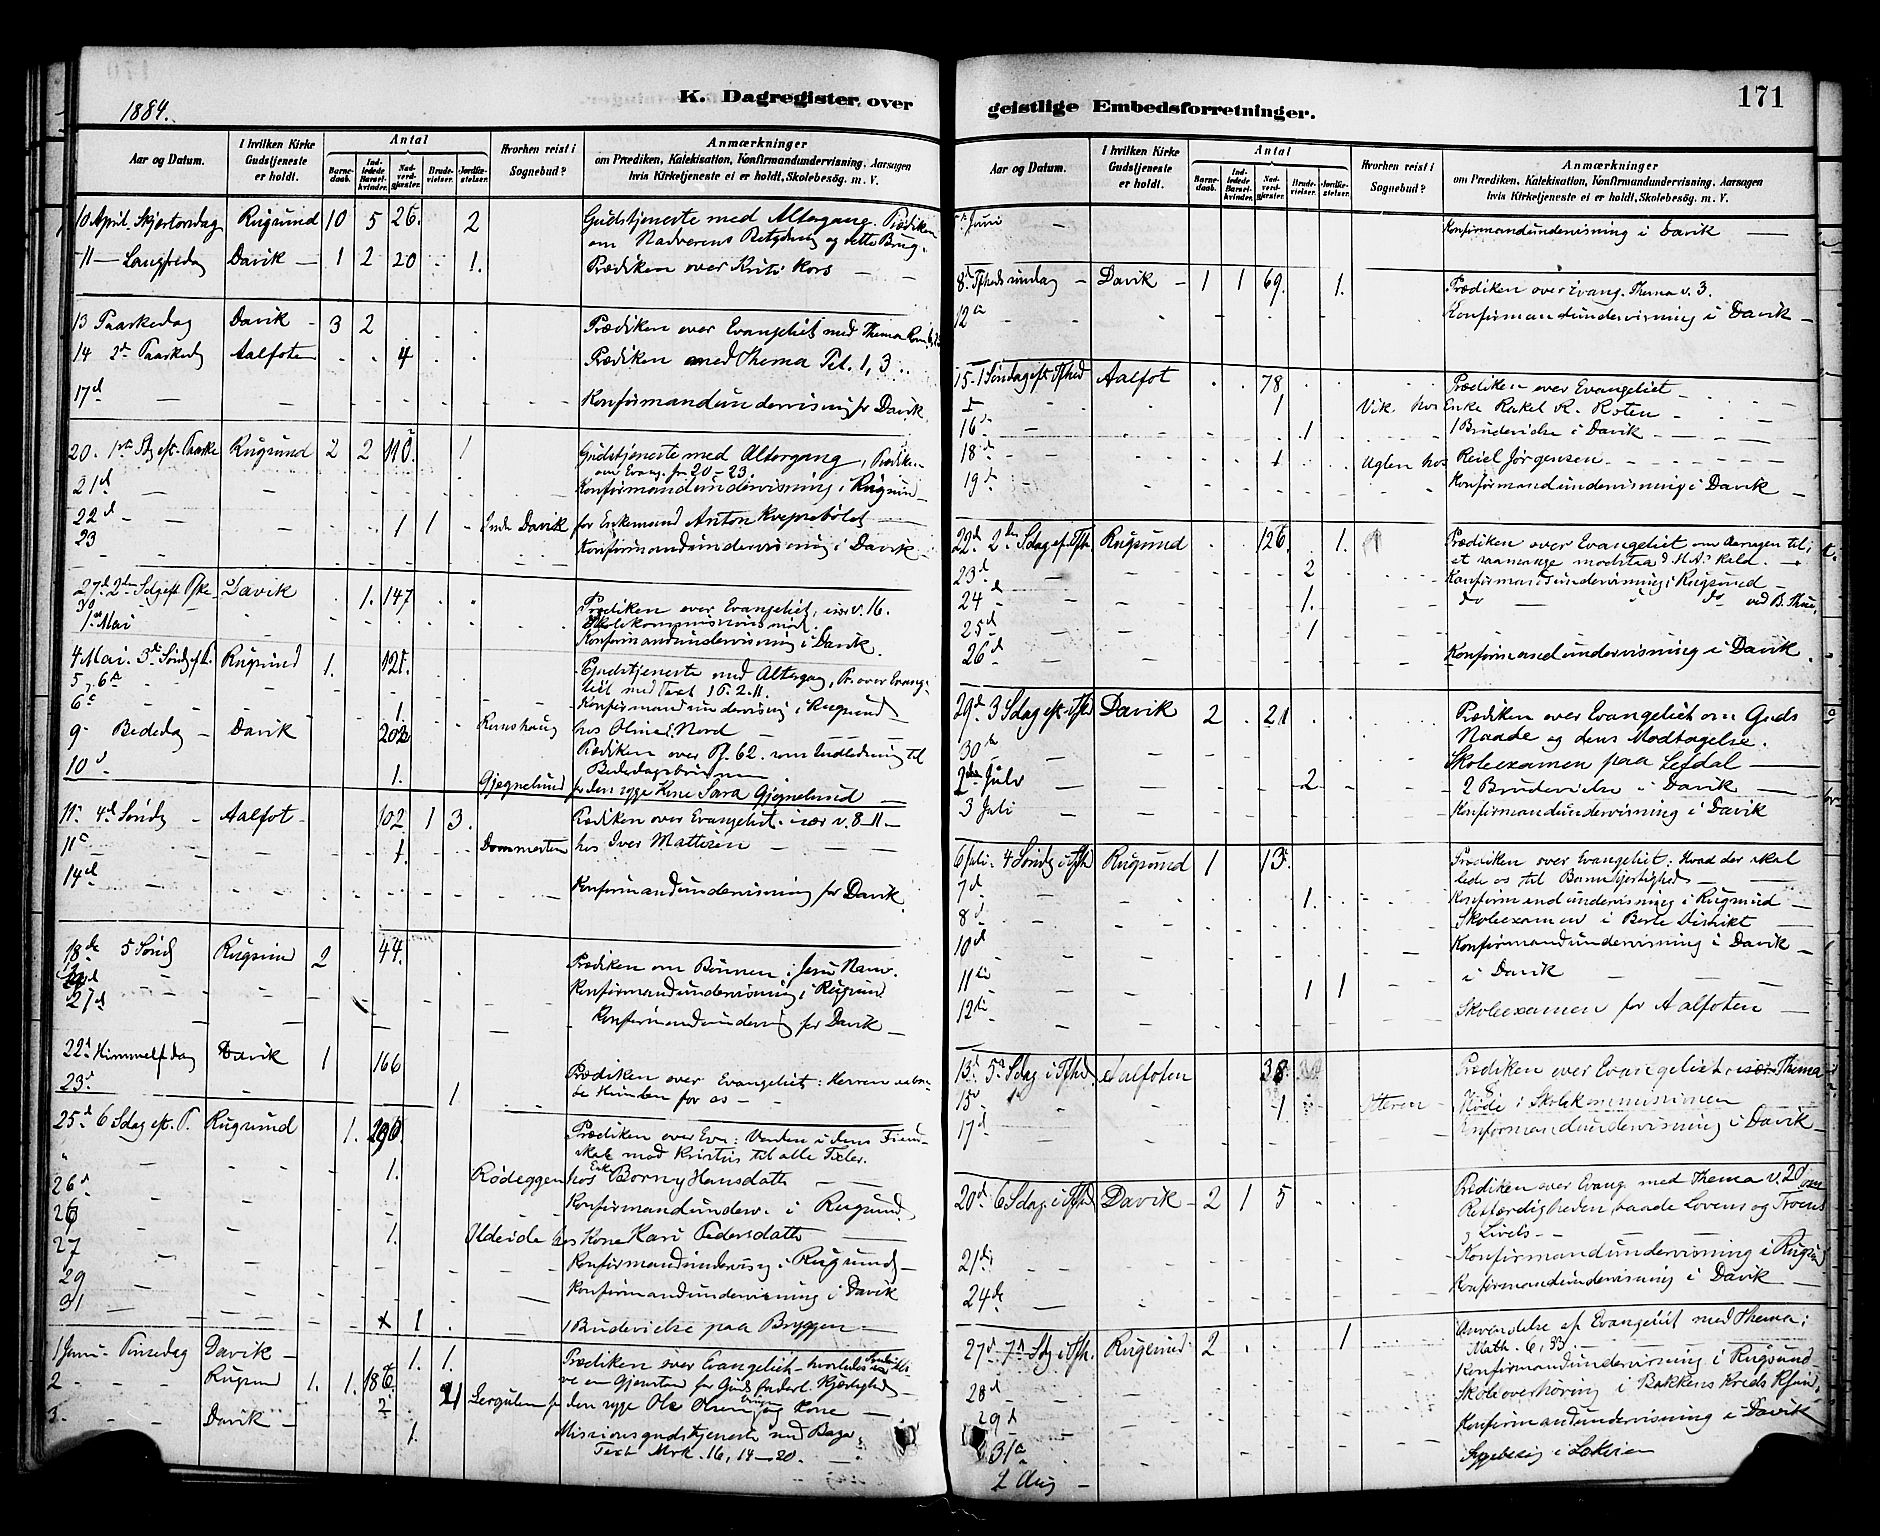 1884.
K. Dagregister over
Aar og Datum.
I hvilken Kirke Gudstjeneste er holdt.
Antal
Barne-daab.
Ind-ledede Barsel-kvinder.
Nad-verd-gjæster.
Brude-vielser.
Jordfæ-stelser.
Hvorhen reist i Sognebud?
Anmærkninger
om Prædiken, Katekisation, Konfirmandundervisning, Aarsagen
hvis Kirketjeneste ei er holdt, Skolebesøg. m. V.
10 April Skjertorsdag Rugsund 10 5 26. 2 Gudstjeneste med Altergang. Prædiken
om Nadverens Betydning og dette Brug.
11 — Langfredag Davik — 1 2 20 1. Prædiken over Kristi Kors —
13 Paaskedag Davik 3 2 Prædiken over Evangeliet med Thema
14 2d Paaskedg Aalfoten 4 Prædiken med Thema Pet. 1, 3
17d — Konfirmandundervisning for Davik
20. 1ste Sdg eft. Paaske Rugsund 2 2 110. 1 Gudstjeneste med Altergang, Prædiken
om Evang. fra 20-23.
21d — Konfirmandundervisning i Rugsund
22d — 1 1 Davik for Enkemand Anton
23 — Konfirmandundervisning i Davik
27d 2den Sdg eft. Davik 1. 147 Prædiken over Evangeliet, især v. 16.
30 Skolekommissionsmöde.
1ste Mai Konfirmandundervisning i Davik.
4 Mai. 3d Søndg eft. P. Rugsund 1. 121. Gudstjeneste med Altergang, Pr. over Evange-
liet med Text 1 P. 2. 11.
5, 6d Konfirmandundervisning i Rugsund
6d 1. hos Nord
9 Bededag — Davik 202 Prædiken over Ps. 62. som Indledning til
Bededagsbönnen
10d 1. Gjegnelund for den syge Kone Sara Gjegnelund —
11. 4d Søndg Aalfot 102 1 3. Prædiken over Evangeliet. især v. 8-11 —
11d 1. Dommersten hos Iver Mattisen —
14d — Konfirmandundervisning for Davik
18de 5 Søndg Rugsund 2 44. Prædiken om Bönnen i Jesu Navn.
Konfirmandundervisning i Rugsund
27d Konfirmandundervisng for Davik —
22d Himmelf.dag Davik 1 166 Prædiken over Evangeliet: Herren
Himlen for os —
23d 1
25d 6 Sdag eft. P. Rugsund 1. 290. Prædiken over Ev.: Verden i dens Fiend-
skab mod Kristus til alle Tider.
— 1. Rödeggen hos Enke Borny Hansdatter —
26d Konfirmandunderv. i Rugsund
26 1. Ildeide hos Kone Kari Pedersdatter
27 Konfirmandundervisng i Rugsund
29 Konfirmandundervisning i Davik
31 1 1 Brudevielse paa Bryggen —
1 Juni Pinsedag Davik — 1. 1. Prædiken over Evangeliet — hvorledes
Gjenstand for Guds Kjærlighed
2 Rugsund 1. 1. 186. Lergulen for den syge Ole Olsen og Kone —
3. Davik — 1. Missionsgudstjeneste
Text Mrk. 16, 14-20.
geistlige Embedsforretninger.
171
Aar og Datum.
I hvilken Kirke Gudstjeneste er holdt.
Antal
Barne-daab.
Ind-ledede Barsel-kvinder.
Nad-verd-gjæster.
Brude-vielser.
Jordfæ-stelser.
Hvorhen reist i Sognebud?
Anmærkninger
om Prædiken, Katekisation, Konfirmandundervisning, Aarsagen
hvis Kirketjeneste ei er holdt, Skolebesøg. m. V.
5te Juni — Konfirmandundervisning i Davik —
8d Tfheds søndag — Davik — 1 1 69. 1. Prædiken over Evang. Thema v. 3.
12te Konfirmandundervisning i Davik —
15 — 1 Søndag eft Tfhed Aalfot 78 Prædiken over Evangeliet
1 Vik hos Enke Rakel R. Roten —
16d — 1 1 Brudevielse i Davik —
18d — 1 Uglen hos Reiel Jørgensen —
19d — Konfirmandundervisning i Davik —
22d 2den Sdag ef. Tfh. Rugsund 126. 1. Prædiken over Evangeliet om Aarsagen til,
at saa mange modstaa d. H. A's kald.
23d 2 Konfirmandundervisning i Rugsund —
24 — 1. do — do
25d 1
26d Konfirmandundervisning i Davik
29d 3 Sdag eft. Tfhed Davik 2 21 Prædiken over Evangeliet om Guds
Naade og dens Modtagelse.
30te Skoleexamen paa Lefdal —
2den July 2 2 Brudevielse i Davik —
3 Juli Konfirmandundervisning i Davik
6 Juli 4 Søndg i Tfh Rugsund 1 13. Prædiken over Evangeliet: Hvad der skal
lede os til Barmhjertighed —
7d 1. Konfirmandundervisning i Rugsund —
8d Skoleexamen i Berle Distrikt
10d Konfirmandundervisning i Davik —
11te i Davik —
12te 1 1 Skoleexamen for Aalfoten —
13d 5d Sdag i Tfhed Aalfoten 38. Prædiken over Evangeliet, især Thema
15d 1 Steren Møde i Skolekommissionen
17d Konfirmandundervisning i Davik —
20d 6 Sdag i Tfhed Davik — 2 1 5 Prædiken over Evang. med Thema v. 20 om
Retfærdigheden, baade Lovens og Troens
og Livets —
21d Konfirmandundervisning i Rugsund
24de Konfirmandundervisning i Davik —
27d 7d Sdg i Tfh. Rugsund 2 1 Anvendelse af Evangeliet med Thema:
Math. 6, 33
28d Konfirmandundervisning i Rugsund
29d Skoleoverhøring i Bakkens Kreds
31te Konfirmandundervisning i Davik
2 Aug — Sygebesøg i